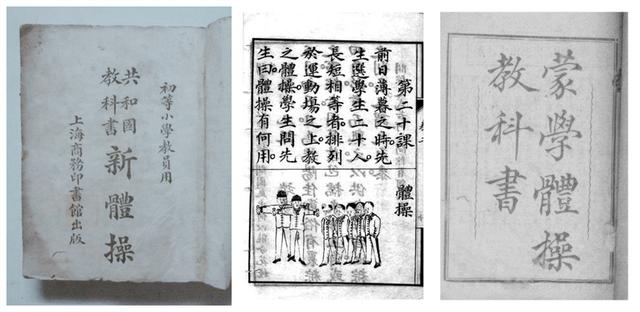 初等小學教員用
共和國
教科書
新體操
上海商務印書館出版
第二十課 體操
前日薄暮之時先
生選學生二十人。
長短相等者排列
於運動場之上教
之體操。學生問先
生曰。體操有何用。
蒙學體操
教科書